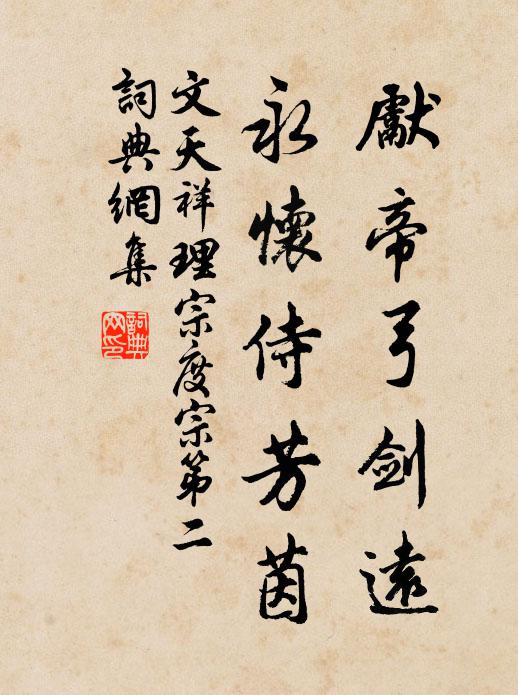 獻帝弓劍遠
永懷侍芳茵
文天祥理宗度宗第二
詞典網集
詞典網印